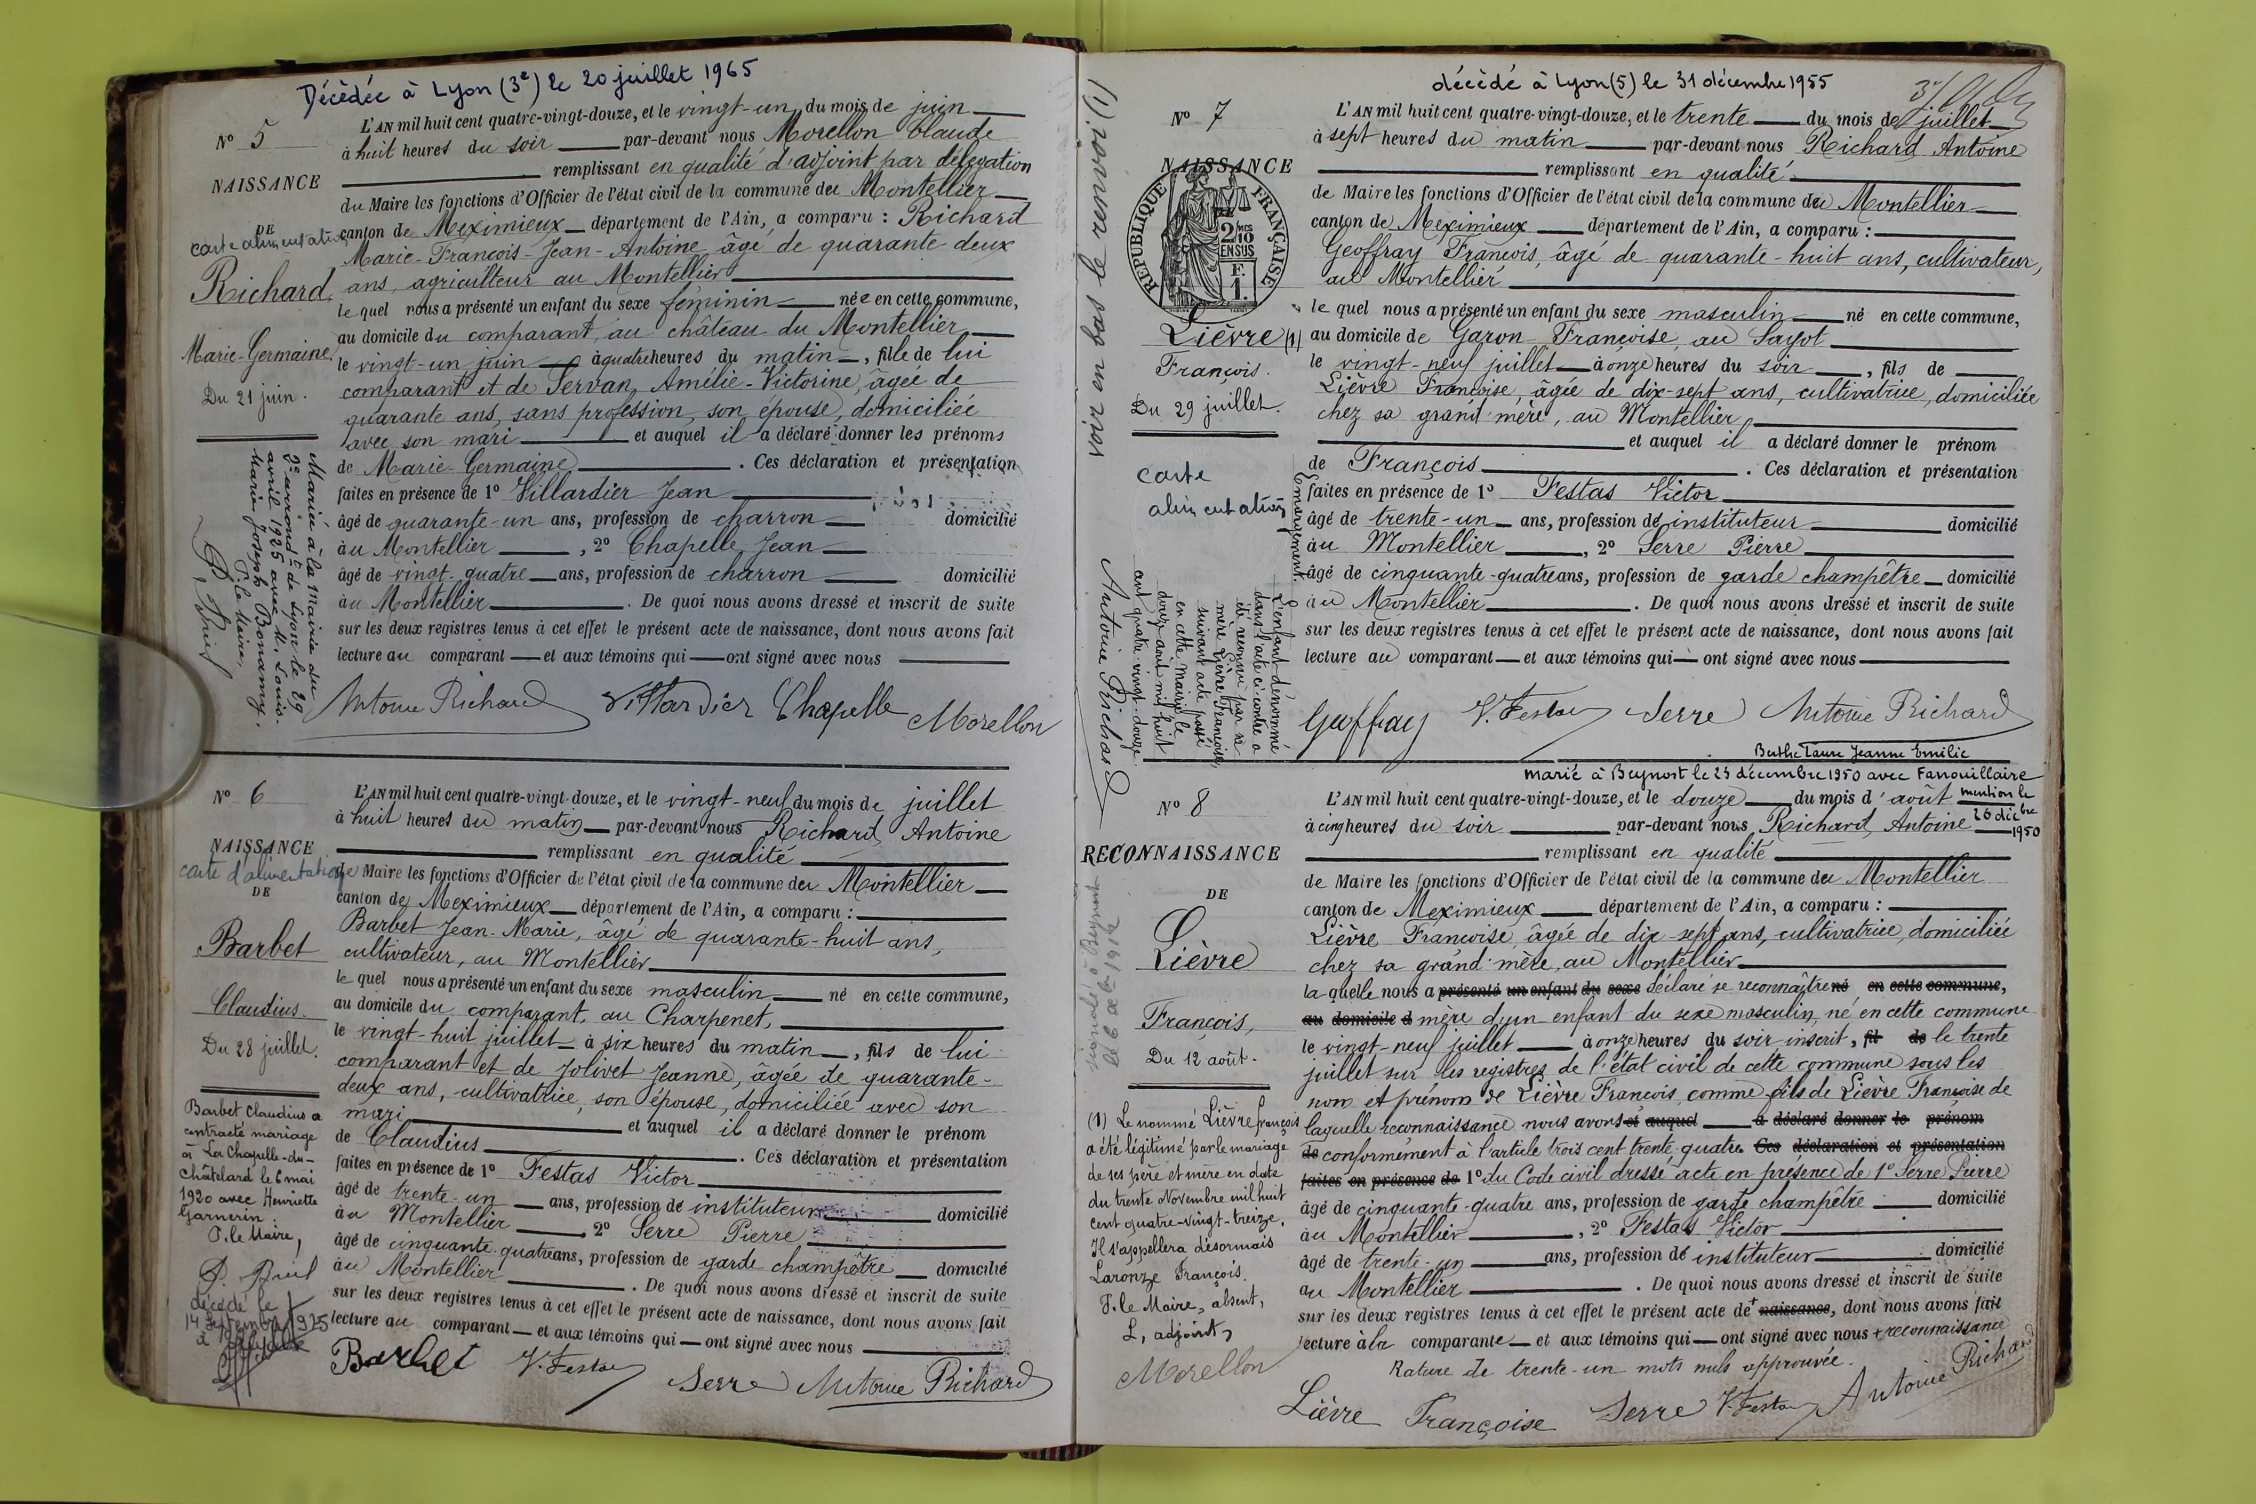 Décédée à Lyon (3e) le 20 juillet 1965
N° 5
NAISSANCE
DE
carte alimentation
Richard
Marie-Germaine
Du 21 juin.
Mariée à la Mairie du
2e arrondt de Lyon le 29
avril 1925 avec M. Louis-
Marie Joseph Bonamy.
P. le Maire,
L'AN mil huit cent quatre-vingt-douze, et le vingt-un du mois de juin
à huit heures du soir par-devant nous Morellon Claude
remplissant en qualité d'adjoint par délégation
du Maire les fonctions d'Officier de l'état civil de la commune du Montellier
canton de Meximieux département de l'Ain, a comparu : Richard
Marie-François-Jean-Antoine âgé de quarante deux
ans, agriculteur au Montellier
le quel nous a présenté un enfant du sexe féminin née en cette commune,
au domicile du comparant, au château du Montellier
le vingt-un juin à quatre heures du matin, fille de lui
comparant et de Servan, Amélie-Victorine, âgée de
quarante ans, sans profession, son épouse, domiciliée
avec son mari et auquel il a déclaré donner les prénoms
de Marie-Germaine. Ces déclaration et présentation
faites en présence de 1° Villardier Jean
âgé de quarante-un ans, profession de charron domicilié
au Montellier, 2° Chapelle Jean
âgé de vingt-quatre ans, profession de charron domicilié
au Montellier. De quoi nous avons dressé et inscrit de suite
sur les deux registres tenus à cet effet le présent acte de naissance, dont nous avons fait
lecture au comparant et aux témoins qui ont signé avec nous
Antoine Richard Villardier Chapelle Morellon
N° 6
NAISSANCE
carte d'alimentation
DE
Barbet
Claudius.
Du 28 juillet.
Barbet Claudius a
contracté mariage
à La Chapelle-du-
Châtelard le 6 mai
1920 avec Henriette
Garnerin.
P. le Maire,
décédé le
14 septembre 1925
L'AN mil huit cent quatre-vingt-douze, et le vingt-neuf du mois de juillet
à huit heures du matin par-devant nous Richard Antoine
remplissant en qualité
de Maire les fonctions d'Officier de l'état civil de la commune du Montellier
canton de Meximieux département de l'Ain, a comparu :
Barbet Jean-Marie, âgé de quarante-huit ans,
cultivateur, au Montellier
le quel nous a présenté un enfant du sexe masculin né en cette commune,
au domicile du comparant, au Charpenet,
le vingt-huit juillet à six heures du matin, fils de lui
comparant et de Jolivet Jeanne, âgée de quarante-
deux ans, cultivatrice, son épouse, domiciliée avec son
mari et auquel il a déclaré donner le prénom
de Claudius. Ces déclaration et présentation
faites en présence de 1° Festas Victor
âgé de trente-un ans, profession de instituteur domicilié
au Montellier 2° Serre Pierre
âgé de cinquante-quatre ans, profession de garde champêtre domicilié
au Montellier. De quoi nous avons dressé et inscrit de suite
sur les deux registres tenus à cet effet le présent acte de naissance, dont nous avons fait
lecture au comparant et aux témoins qui ont signé avec nous
Barbet V. Festas Serre Antoine Richard
décédé à Lyon (5) le 31 décembre 1955
voir en bas le renvoi (1)
N° 7
NAISSANCE
RÉPUBLIQUE FRANÇAISE
2/10
EN SUS
F.
1.
Lièvre (1)
François.
Du 29 juillet.
carte
alimentation
Emargement.
L'enfant dénommé
dans l'acte ci-contre a
été reconnu par sa
mère Lièvre Françoise,
suivant acte passé
en cette mairie le
douze août mil huit
cent quatre vingt-douze.
Antoine Richard
L'AN mil huit cent quatre-vingt-douze, et le trente du mois de juillet
à sept heures du matin par-devant nous Richard Antoine
remplissant en qualité
de Maire les fonctions d'Officier de l'état civil de la commune du Montellier
canton de Meximieux département de l'Ain, a comparu :
Geoffray François, âgé de quarante-huit ans, cultivateur,
au Montellier
le quel nous a présenté un enfant du sexe masculin né en cette commune,
au domicile de Garon Françoise, au Sayot
le vingt-neuf juillet à onze heures du soir, fils de
Lièvre Françoise, âgée de dix-sept ans, cultivatrice, domiciliée
chez sa grand'mère, au Montellier
et auquel il a déclaré donner le prénom
de François. Ces déclaration et présentation
faites en présence de 1° Festas Victor
âgé de trente-un ans, profession de instituteur domicilié
au Montellier, 2° Serre Pierre
âgé de cinquante-quatre ans, profession de garde champêtre domicilié
au Montellier. De quoi nous avons dressé et inscrit de suite
sur les deux registres tenus à cet effet le présent acte de naissance, dont nous avons fait
lecture au comparant et aux témoins qui ont signé avec nous
Geoffray V. Festas Serre Antoine Richard
Berthe Laure Jeanne Emilie
marié à Beynost le 23 décembre 1950 avec Fanouillaire
mention le
26 décbre
1950
N° 8
RECONNAISSANCE
DE
Lièvre
François,
Du 12 août.
(1) Le nommé Lièvre françois
a été légitimé par le mariage
de ses père et mère en date
du trente Novembre mil huit
cent quatre-vingt-treize.
Il s'appellera désormais
Laronze François.
P. le Maire, absent,
L, adjoint,
Morellon
L'AN mil huit cent quatre-vingt-douze, et le douze du mois d'août
à cinq heures du soir par-devant nous Richard Antoine
remplissant en qualité
de Maire les fonctions d'Officier de l'état civil de la commune du Montellier
canton de Meximieux département de l'Ain, a comparu :
Lièvre Françoise, âgée de dix-sept ans, cultivatrice, domiciliée
chez sa grand'mère, au Montellier
la quelle nous a présenté un enfant du sexe déclaré se reconnaître né en cette commune,
au domicile d mère d'un enfant du sexe masculin, né en cette commune
le vingt-neuf juillet à onze heures du soir inscrit, fil de le trente
juillet sur les registres de l'état civil de cette commune sous les
nom et prénom de Lièvre François, comme fils de Lièvre Françoise de
laquelle reconnaissance nous avons et auquel a déclaré donner le prénom
de conformément à l'article trois cent trente-quatre Ces déclaration et présentation
faites en présence de 1° du Code civil dressé acte en présence de 1° Serre Pierre
âgé de cinquante-quatre ans, profession de garde champêtre domicilié
au Montellier, 2° Festas Victor
âgé de trente-un ans, profession de instituteur domicilié
au Montellier. De quoi nous avons dressé et inscrit de suite
sur les deux registres tenus à cet effet le présent acte de + naissance, dont nous avons fait
lecture à la comparante et aux témoins qui ont signé avec nous + reconnaissance
Rature de trente-un mots nuls approuvée.
Lièvre Françoise Serre V. Festas Antoine Richard